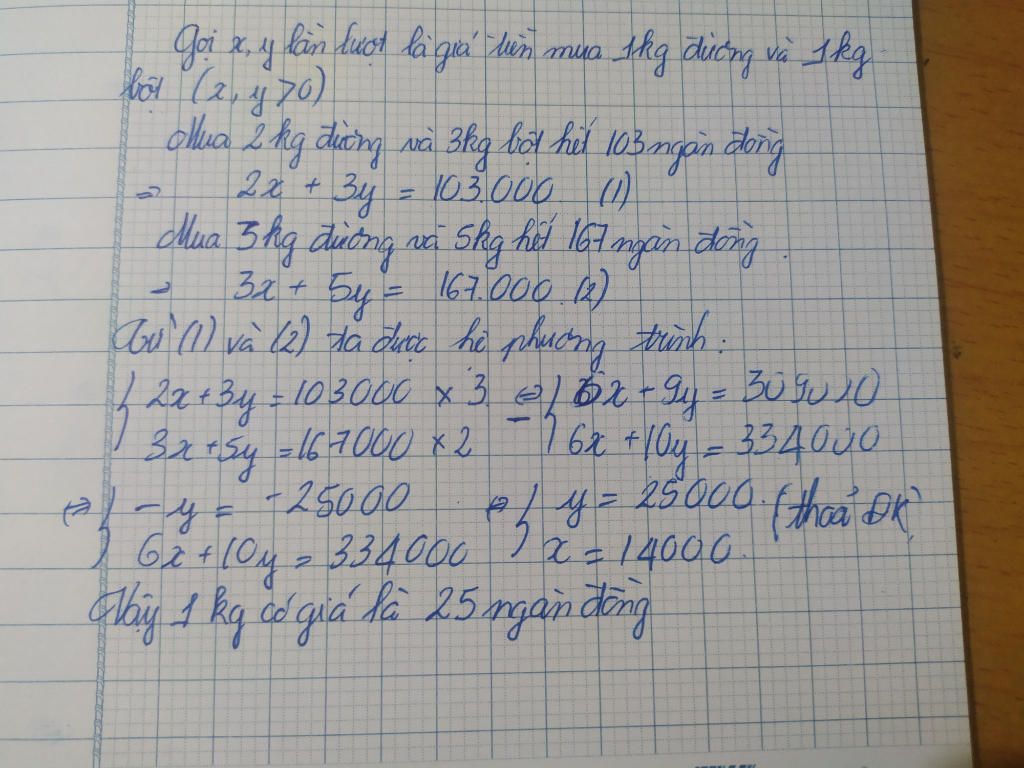 Gọi x, y lần lượt là giá tiền mua 1kg đường và 1kg
bột (x, y > 0)
Mua 2kg đường và 3kg bột hết 103 ngàn đồng
⇒ 2x + 3y = 103.000 (1)
Mua 3kg đường và 5kg hết 167 ngàn đồng.
⇒ 3x + 5y = 167.000 (2)
Từ (1) và (2) ta được hệ phương trình:
{ 2x + 3y = 103000 × 3 ⇔ { 6x + 9y = 309000
3x + 5y = 167000 × 2 − 6x + 10y = 334000
⇔ { - y = - 25000 ⇔ { y = 25000. (thoả ĐK)
6x + 10y = 334000 x = 14000.
Vậy 1 kg có giá là 25 ngàn đồng